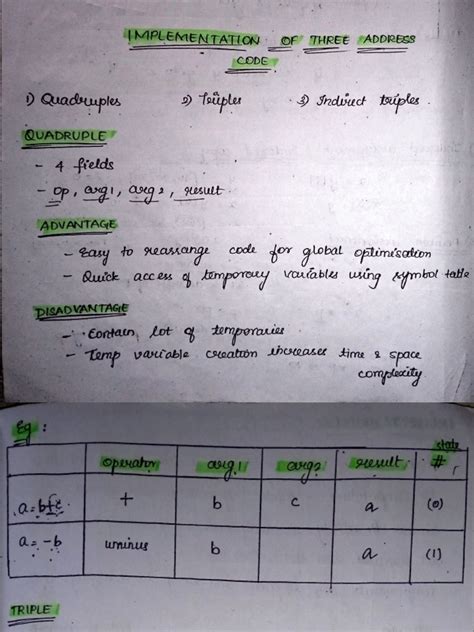 IMPLEMENTATION OF THREE ADDRESS
CODE
1) Quadruples 2) Triples 3) Indirect triples.
QUADRUPLE
- 4 fields
- op, arg1, arg2, result.
ADVANTAGE
- Easy to rearrange code for global optimisation
- Quick access of temporary variables using symbol table
DISADVANTAGE
- Contain lot of temporaries.
- Temp variable creation increases time & space
complexity
Eg :
operator arg1 arg2 result #
a=b+c + b c a (0)
a= -b uminus b a (1)
TRIPLE